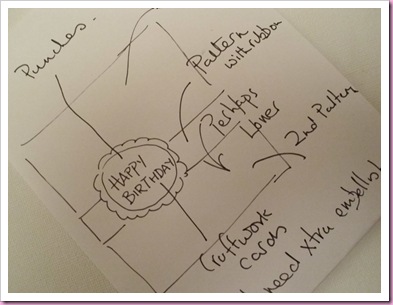 Punches.
Pattern
with ribbon
Perhaps
lower
2nd Pattern
HAPPY
BIRTHDAY
Craftwork
cards
need xtra embellish